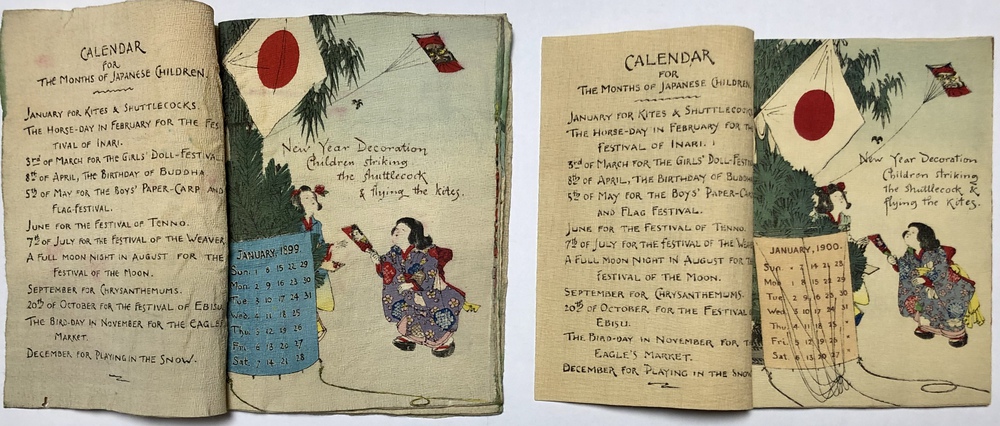 CALENDAR
FOR
THE MONTHS OF JAPANESE CHILDREN.
JANUARY FOR KITES & SHUTTLECOCKS.
THE HORSE-DAY IN FEBRUARY FOR THE FES
TIVAL OF INARI.
3rd OF MARCH FOR THE GIRLS' DOLL-FESTIVAL
8th OF APRIL, THE BIRTHDAY OF BUDDHA
5th OF MAY FOR THE BOYS' PAPER-CARP AND
FLAG-FESTIVAL.
JUNE FOR THE FESTIVAL OF TENNO.
7th OF JULY FOR THE FESTIVAL OF THE WEAVER
A FULL MOON NIGHT IN AUGUST FOR THE
FESTIVAL OF THE MOON.
SEPTEMBER FOR CHRYSANTHEMUMS.
20th OF OCTOBER FOR THE FESTIVAL OF EBISU
THE BIRD-DAY IN NOVEMBER FOR THE EAGLE'S
MARKET.
DECEMBER FOR PLAYING IN THE SNOW.
New Year Decoration
Children striking
the shuttlecock
& flying the kites.
JANUARY, 1899.
Sun. 1 8 15 22 29
Mon. 2 9 16 23 30
Tue. 3 10 17 24 31
Wed. 4 11 18 25
Thu. 5 12 19 26
Fri. 6 13 20 27
Sat. 7 14 21 28
CALENDAR
FOR
THE MONTHS OF JAPANESE CHILDREN
JANUARY FOR KITES & SHUTTLECOCK
THE HORSE-DAY IN FEBRUARY FOR THE
FESTIVAL OF INARI.
3rd OF MARCH FOR THE GIRLS' DOLL-FESTI
8th OF APRIL, THE BIRTHDAY OF BUDDH
5th OF MAY FOR THE BOYS' PAPER-CAR
AND FLAG FESTIVAL.
JUNE FOR THE FESTIVAL OF TENNO.
7th OF JULY FOR THE FESTIVAL OF THE WEA
A FULL MOON NIGHT IN AUGUST FOR T
FESTIVAL OF THE MOON.
SEPTEMBER FOR CHRYSANTHEMUMS.
20th OF OCTOBER, FOR THE FESTIVAL O
EBISU.
THE BIRD-DAY IN NOVEMBER FOR T
EAGLE'S MARKET.
DECEMBER FOR PLAYING IN THE SNOW
New Year Decoration
Children striking
the shuttlecock &
flying the kites.
JANUARY, 1900.
Sun. 7 14 21 28
Mon. 1 8 15 22 29
Tue. 2 9 16 23 30
Wed. 3 10 17 24 31
Thu. 4 11 18 25
Fri. 5 12 19 26
Sat. 6 13 20 27